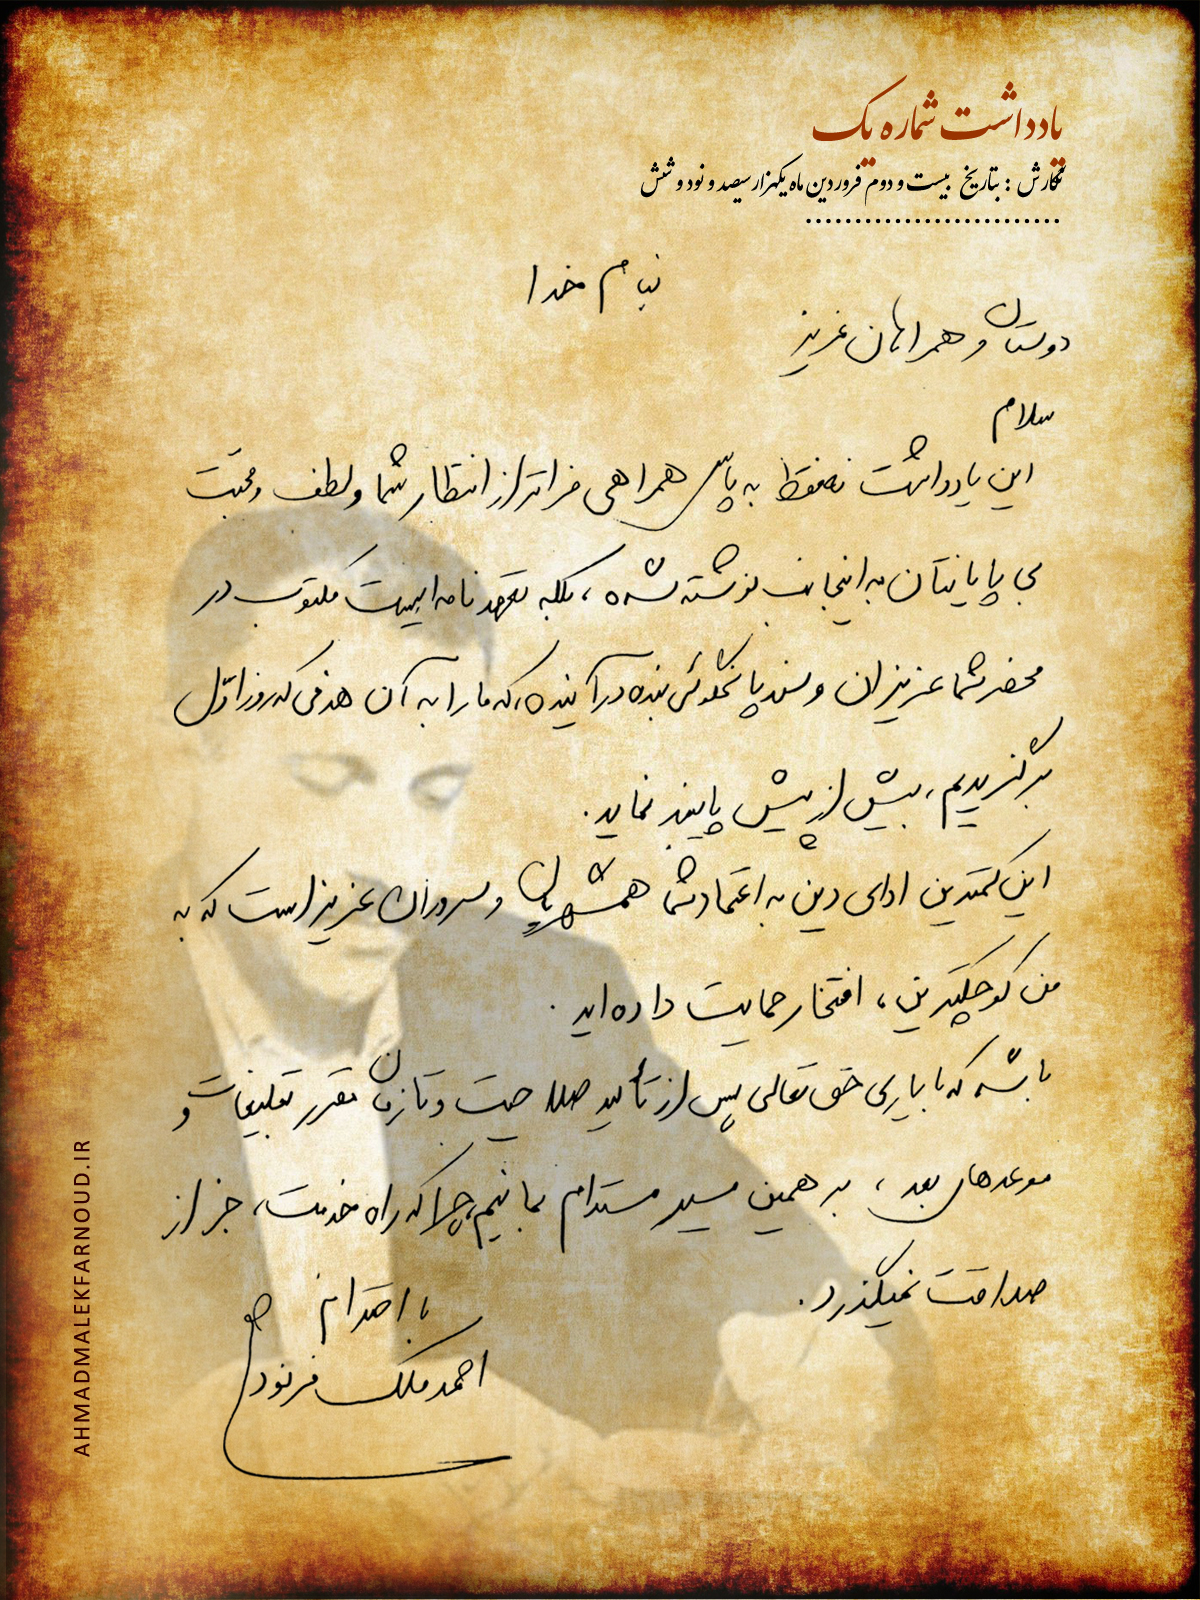 یادداشت شماره یک
نگارش : بتاریخ بیست و دوم فروردین ماه یکهزار سیصد و نود و شش
..........................
بنام خدا
دوستان و همراهان عزیز
سلام
این یادداشت نه فقط به پاس همراهی فراتر از انتظار شما و لطف و محبت
بی پایانتان به اینجانب نوشته شده ، بلکه تعهدنامه ایست مکتوب در
محضر شما عزیزان و سند پاسخگوئی بنده در آینده، که ما را به آن هدفی که روز اوّل
برگزیدیم، بیش از پیش پایبند نماید.
این کمترین ادای دین به اعتماد شما همشهریان و سروران عزیز است که به
من کوچکترین ، افتخار حمایت داده اید .
باشد که با یاری حق تعالی پس از تأیید صلاحیت و تا زمان مقرر تبلیغات و
موعدهای بعد ، بر همین مسیر مستدام بمانیم، چرا که راه خدمت ، جز از
صداقت نمیگذرد.
با احترام
احمد ملک فرنود
AHMADMALEKFARNOUD.IR